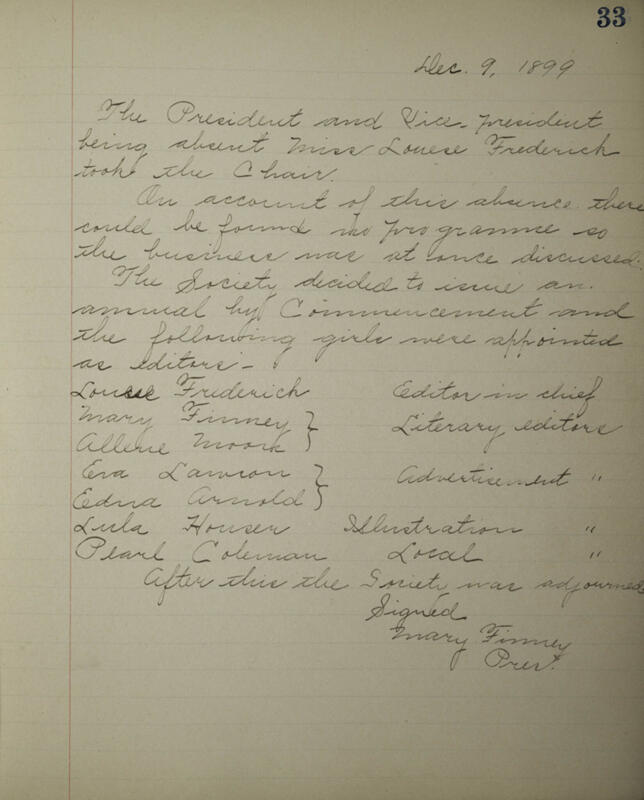 33
Dec. 9, 1899
The President and Vice president
being absent Miss Louese Frederich
took the Chair.
On account of this absence there
could be found no programme so
the business was at once discussed.
The Society decided to issue an
annual by Commencement and
the following girls were appointed
as editors -
Louese Frederich Editor in chief
Mary Finney } Literary editors
Allene Moork }
Eva Lawson } Advertisement "
Edna Arnold }
Lula Houser Illustration "
Pearl Coleman Local "
After this the Society was adjourned
Signed
Mary Finney
Prest.